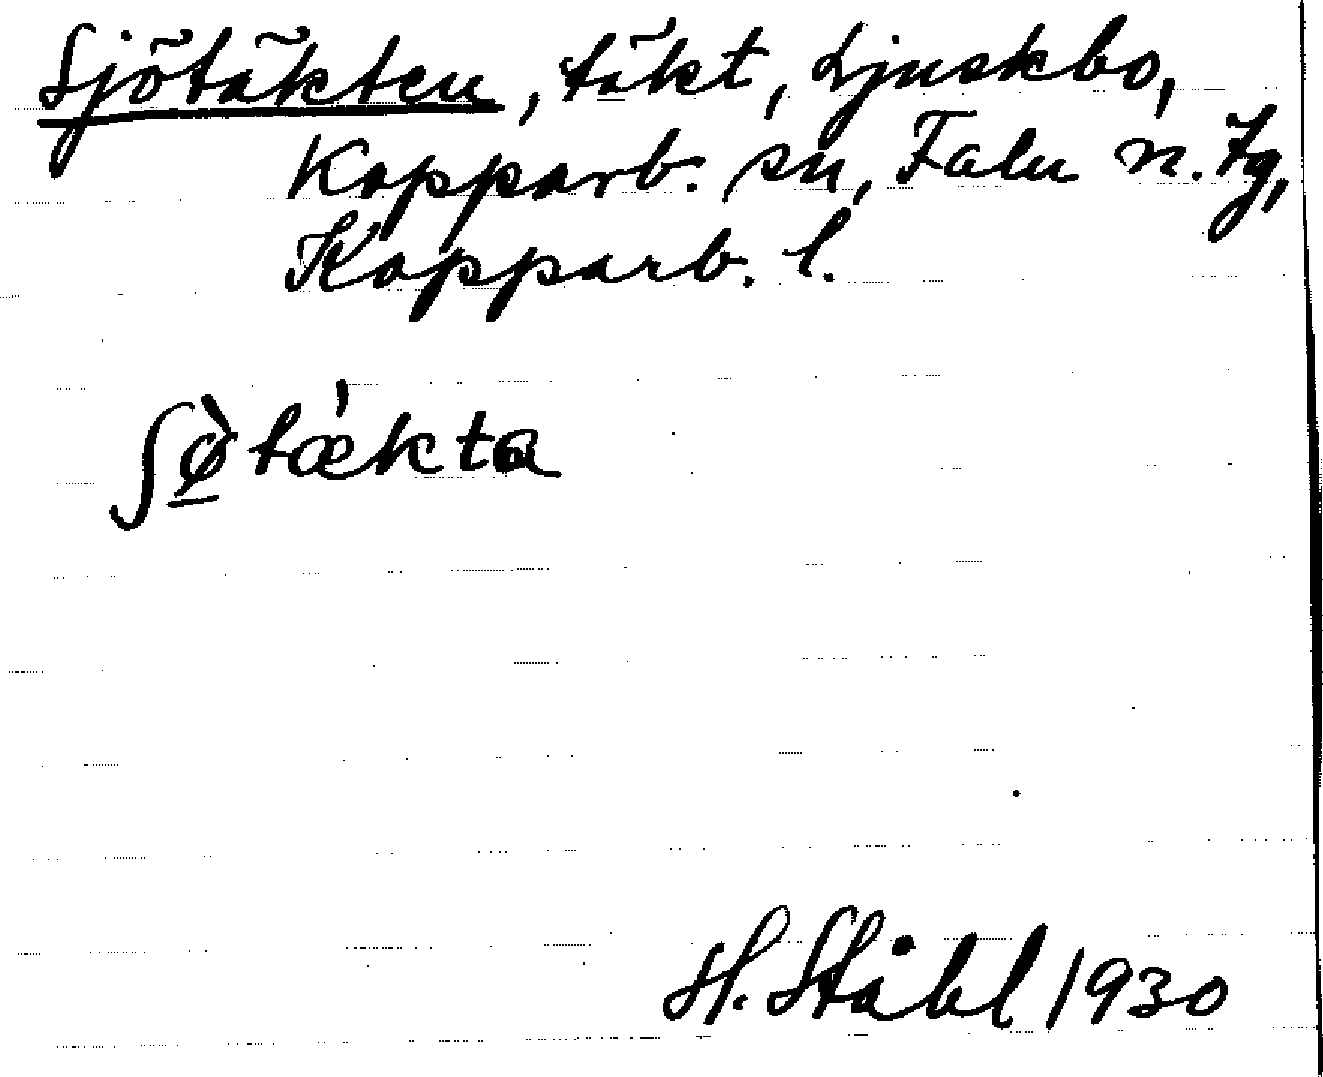 Sjötäkten, täkt, Ljuskbo,
Kopparb. sn, Falu n. tg,
Kopparb. l.
ʃø̠̀tæ̍kta
H. Ståhl 1930